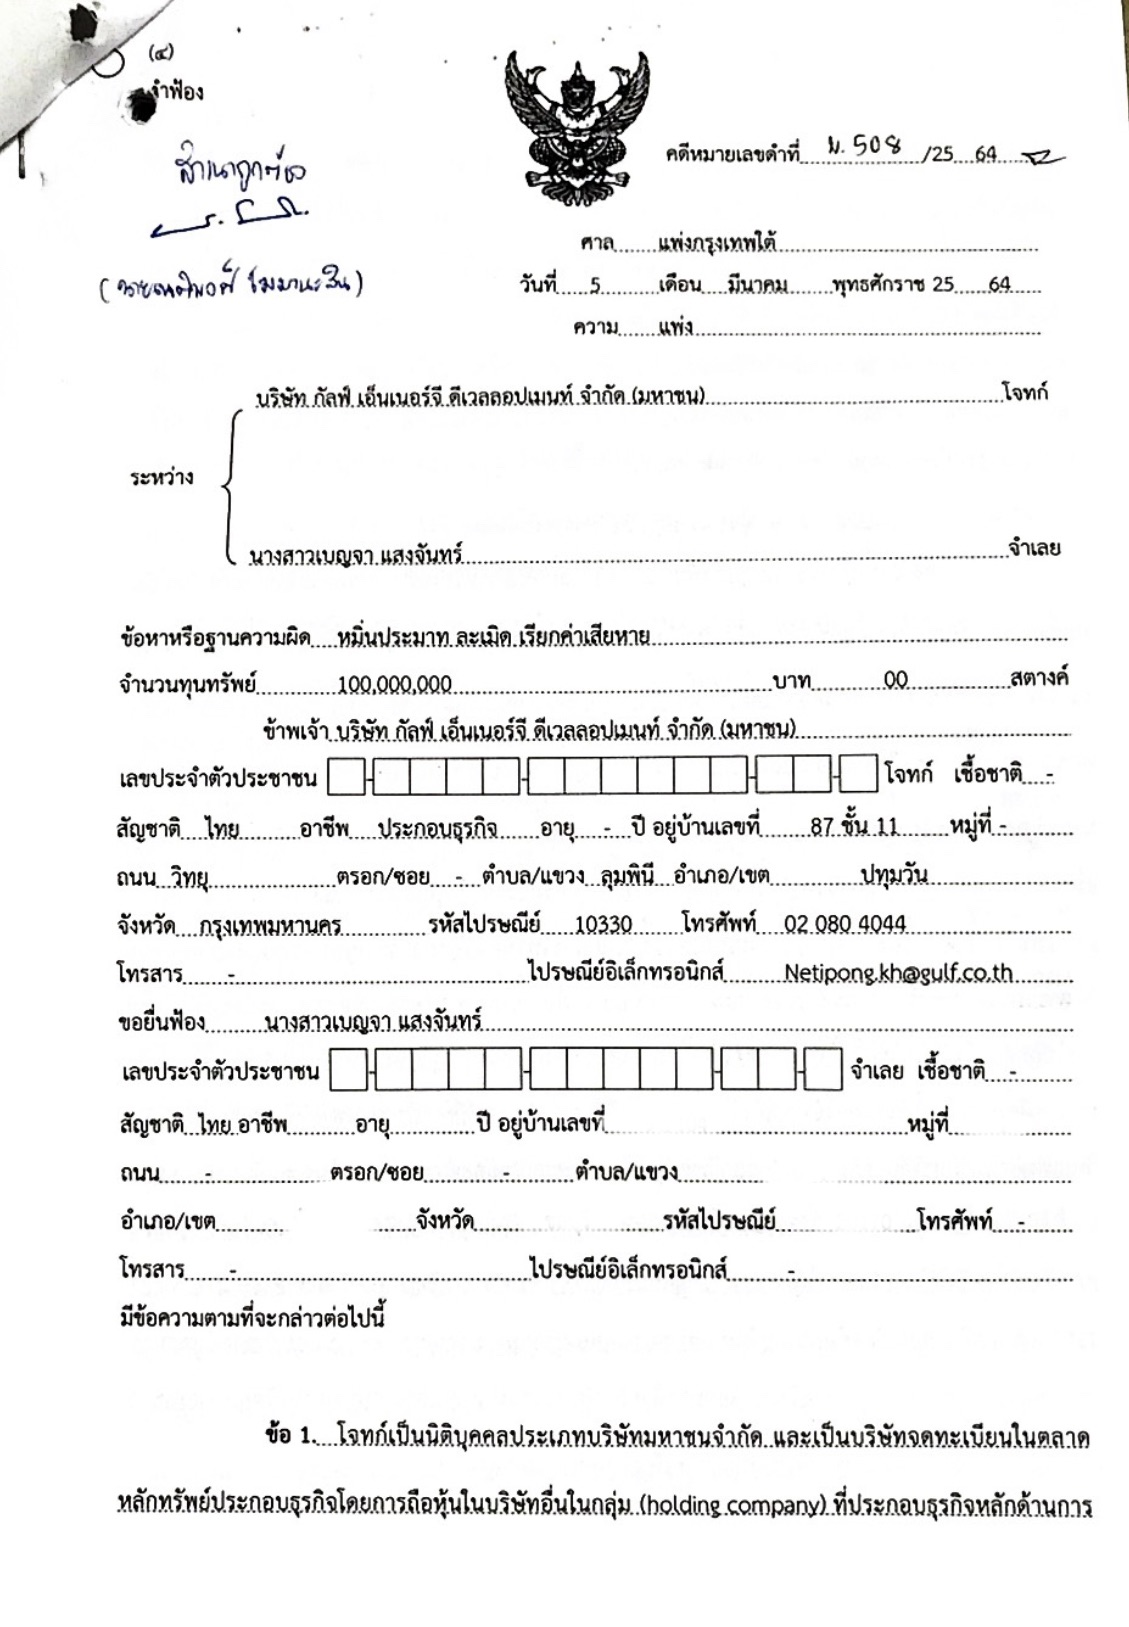 (๔)
คำฟ้อง
สำเนาถูกต้อง
คดีหมายเลขดำที่ พ. 508 /25 64
ศาล แพ่งกรุงเทพใต้
วันที่ 5 เดือน มีนาคม พุทธศักราช 25 64
ความ แพ่ง
บริษัท กัลฟ์ เอ็นเนอร์จี ดีเวลลอปเมนท์ จำกัด (มหาชน) โจทก์
ระหว่าง
นางสาวเบญจา แสงจันทร์ จำเลย
ข้อหาหรือฐานความผิด หมิ่นประมาท ละเมิด เรียกค่าเสียหาย
จำนวนทุนทรัพย์ 100,000,000 บาท 00 สตางค์
ข้าพเจ้า บริษัท กัลฟ์ เอ็นเนอร์จี ดีเวลลอปเมนท์ จำกัด (มหาชน)
เลขประจำตัวประชาชน โจทก์ เชื้อชาติ -
สัญชาติ ไทย อาชีพ ประกอบธุรกิจ อายุ - ปี อยู่บ้านเลขที่ 87 ชั้น 11 หมู่ที่ -
ถนน วิทยุ ตรอก/ซอย - ตำบล/แขวง ลุมพินี อำเภอ/เขต ปทุมวัน
จังหวัด กรุงเทพมหานคร รหัสไปรษณีย์ 10330 โทรศัพท์ 02 080 4044
โทรสาร - ไปรษณีย์อิเล็กทรอนิกส์ Netipong.kh@gulf.co.th
ขอยื่นฟ้อง นางสาวเบญจา แสงจันทร์
เลขประจำตัวประชาชน จำเลย เชื้อชาติ -
สัญชาติ ไทย อาชีพ อายุ ปี อยู่บ้านเลขที่ หมู่ที่
ถนน - ตรอก/ซอย - ตำบล/แขวง
อำเภอ/เขต จังหวัด รหัสไปรษณีย์ โทรศัพท์ -
โทรสาร - ไปรษณีย์อิเล็กทรอนิกส์ -
มีข้อความตามที่จะกล่าวต่อไปนี้
ข้อ 1. โจทก์เป็นนิติบุคคลประเภทบริษัทมหาชนจำกัด และเป็นบริษัทจดทะเบียนในตลาด
หลักทรัพย์ประกอบธุรกิจโดยการถือหุ้นในบริษัทอื่นในกลุ่ม (holding company) ที่ประกอบธุรกิจหลักด้านการ